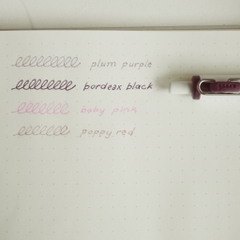 plum purple
bordeax black
baby pink
poppy red